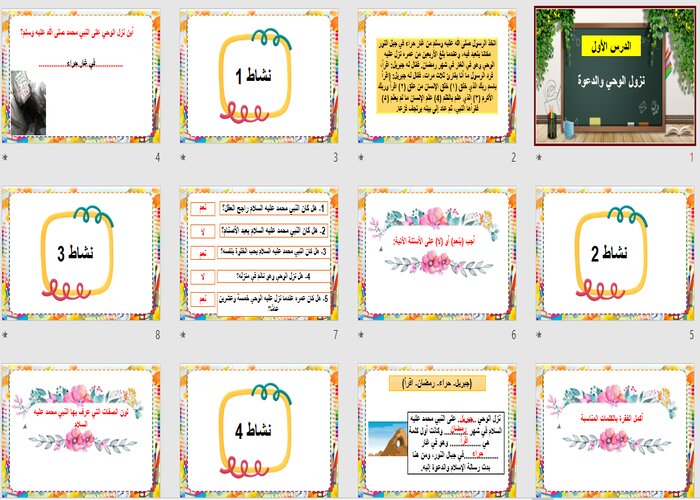 الدرس الأول
نزول الوحي والدعوة
1
اتخذ الرسول صلى الله عليه وسلم من غار حراء في جبل النور
مكانا يتعبد فيه، وعندما بلغ الأربعين من عمره نزل عليه
الوحي وهو في الغار في شهر رمضان، فقال له جبريل: اقرأ،
فرد الرسول ما أنا بقارئ ثلاث مرات، فقال له جبريل: (اقرأ
باسم ربك الذي خلق (١) خلق الإنسان من علق (٢) اقرأ وربك
الأكرم (٣) الذي علم بالقلم (4) علم الإنسان ما لم يعلم (٥)
فقرأها النبي، ثم عاد إلى بيته يرتجف فزعا.
2
نشاط 1
3
أين نزل الوحي على النبي محمد صلى الله عليه وسلم؟
...............في غار حراء...............
4
نشاط 2
5
أجب (بنعم) أو (لا) على الأسئلة الآتية:
6
1- هل كان النبي محمد عليه السلام راجح العقل؟ نعم
2- هل كان النبي محمد عليه السلام يعبد الأصنام؟ لا
3- هل كان النبي محمد عليه السلام يحب الخلوة بنفسه؟ نعم
4- هل نزل الوحي وهو نائم في منزله؟ لا
5- هل كان عمره عندما نزل عليه الوحي خمسة وعشرين
عاما؟ نعم
7
نشاط 3
8
أكمل الفقرة بالكلمات المناسبة
(جبريل- حراء- رمضان- اقرأ)
نزل الوحي ..جبريل.. على النبي محمد عليه
السلام في شهر ..رمضان.. وكانت أول كلمة
هي ....اقرأ.... وهو في غار
....حراء....في جبال النور، ومن هنا
بدأت رسالة الإسلام والدعوة إليه.
نشاط 4
لون الصفات التي عرف بها النبي محمد عليه
السلام